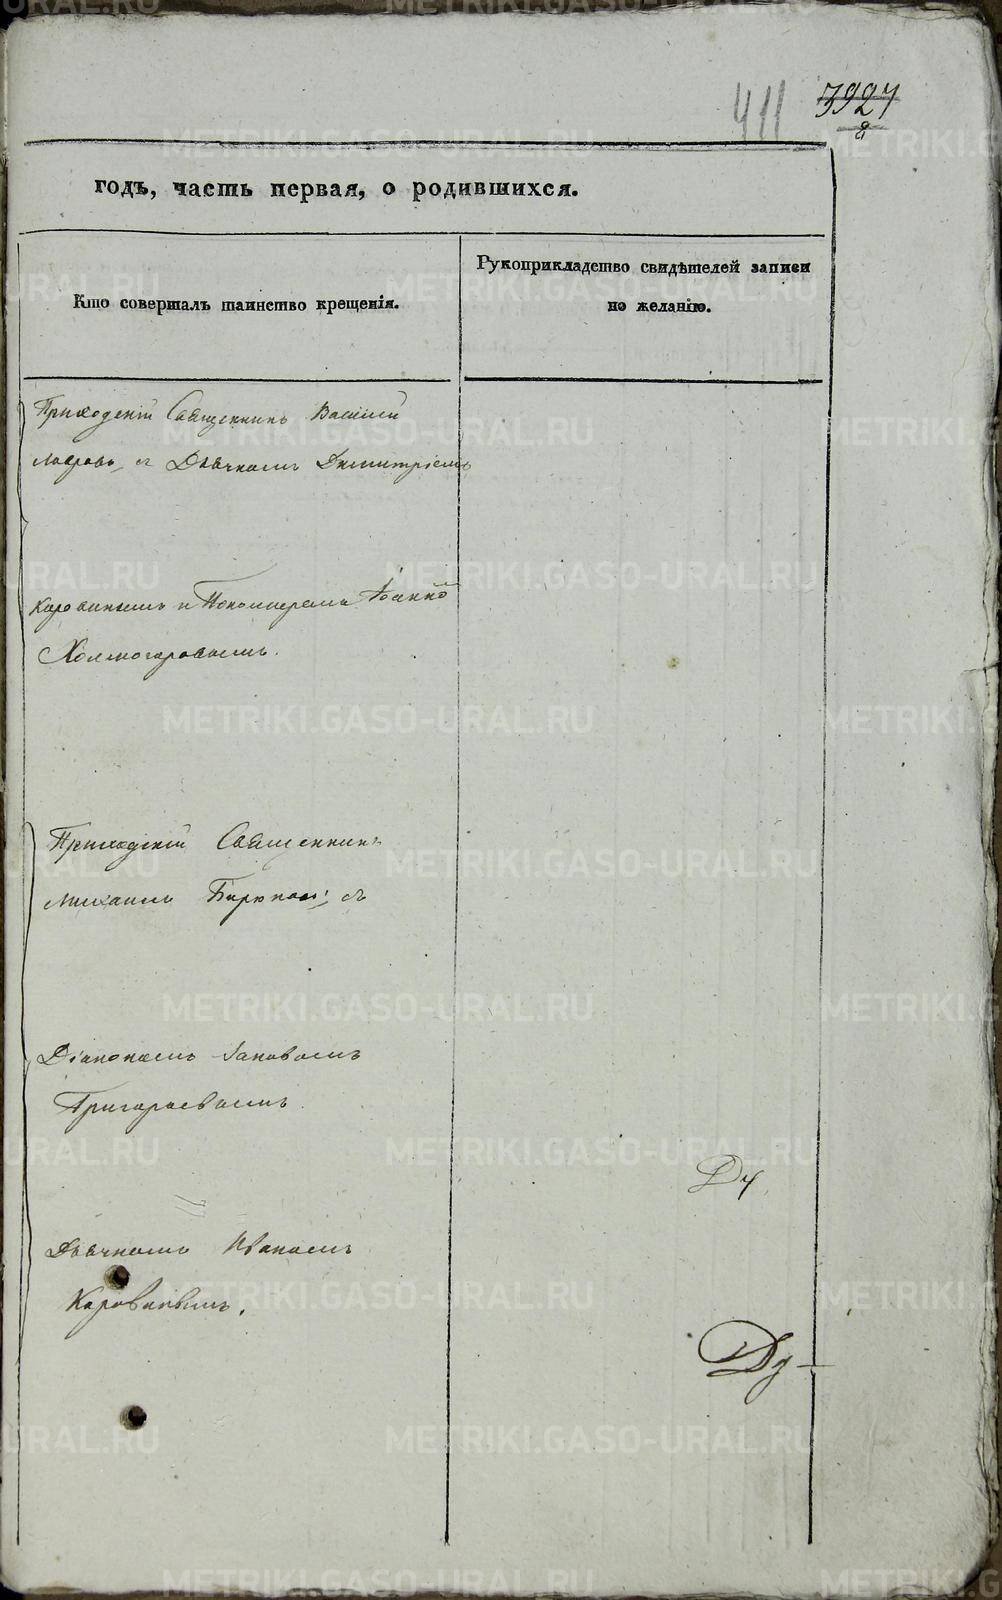 411 3927
годъ, часть первая, о родившихся.
Кто совершалъ таинство крещенія.
Рукоприкладство свидѣтелей записи
по желанію.
Приходскій Священникъ Василій
Лавровъ, съ Дьячкомъ Димитріемъ
Короминымъ и Пономаремъ Іоанномъ
Холмогоровымъ.
Приходскій Священникъ
Михаилъ Бирюковъ, съ
Діакономъ Іаковомъ
Григорьевымъ
Ду
Дьячкомъ Иваномъ
Коровинымъ.
Ду
METRIKI.GASO-URAL.RU